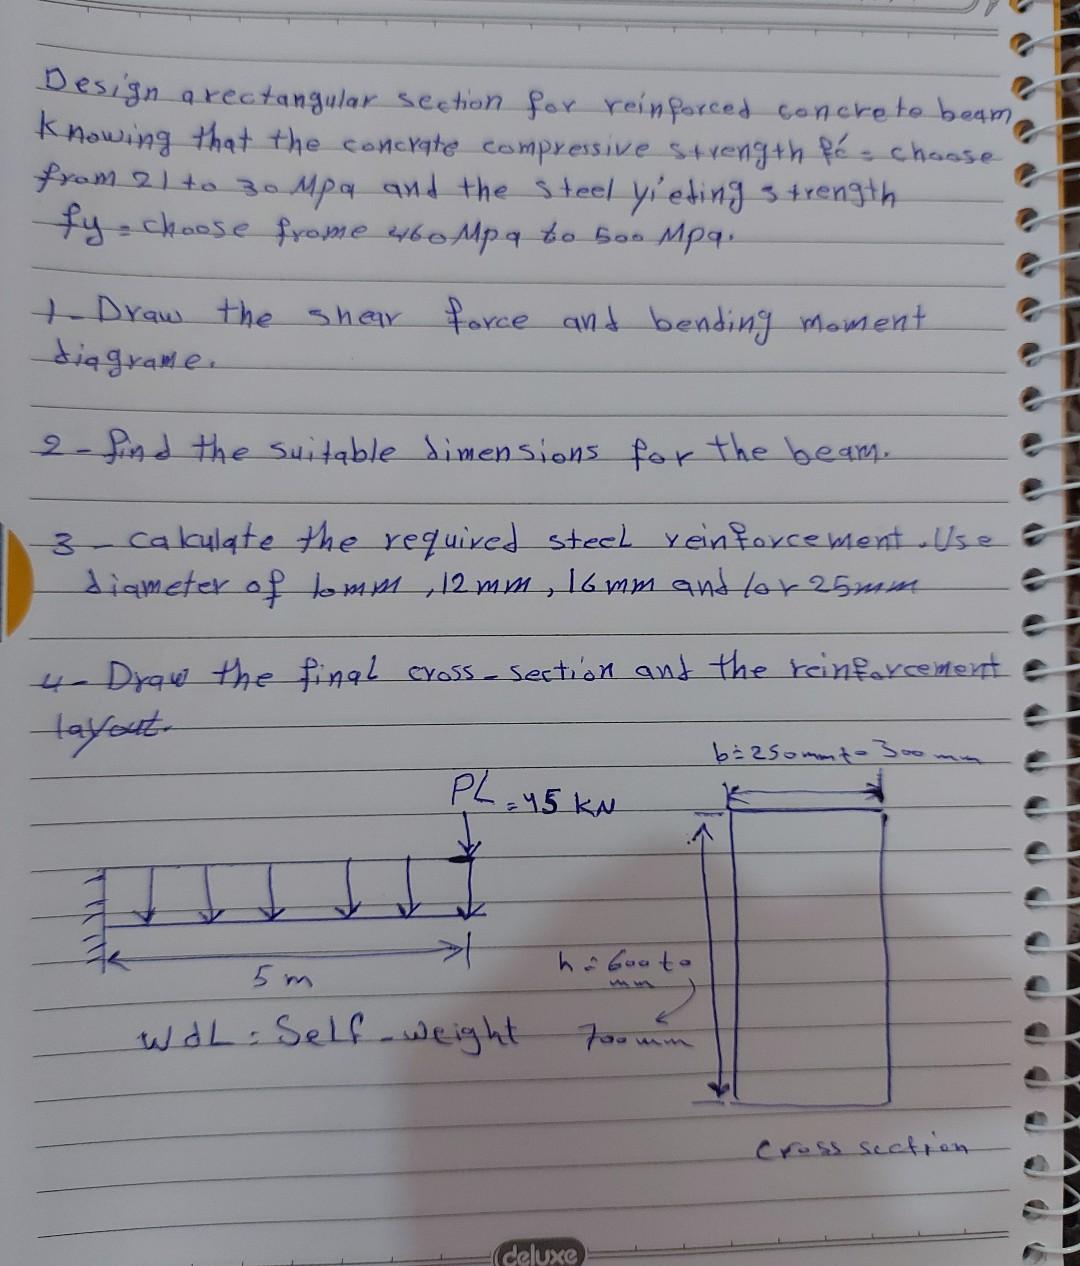 Design a rectangular section for reinforced concrete beam
Knowing that the concrate compressive strength fć = choose
from 21 to 30 Mpa and the steel yieding strength
fy = choose frome 460 Mpa to 500 Mpa.
1- Draw the shear force and bending moment
diagrame.
2- find the suitable dimensions for the beam.
3 - calculate the required steel reinforcement. Use
diameter of 10mm, 12 mm, 16 mm and/or 25mm
4- Draw the final cross-section and the reinforcement
layout.
b = 250mm to 300 mm
PL = 45 KN
5 m
h = 600 to
mm
700 mm
WdL = Self-weight
Cross section
deluxe